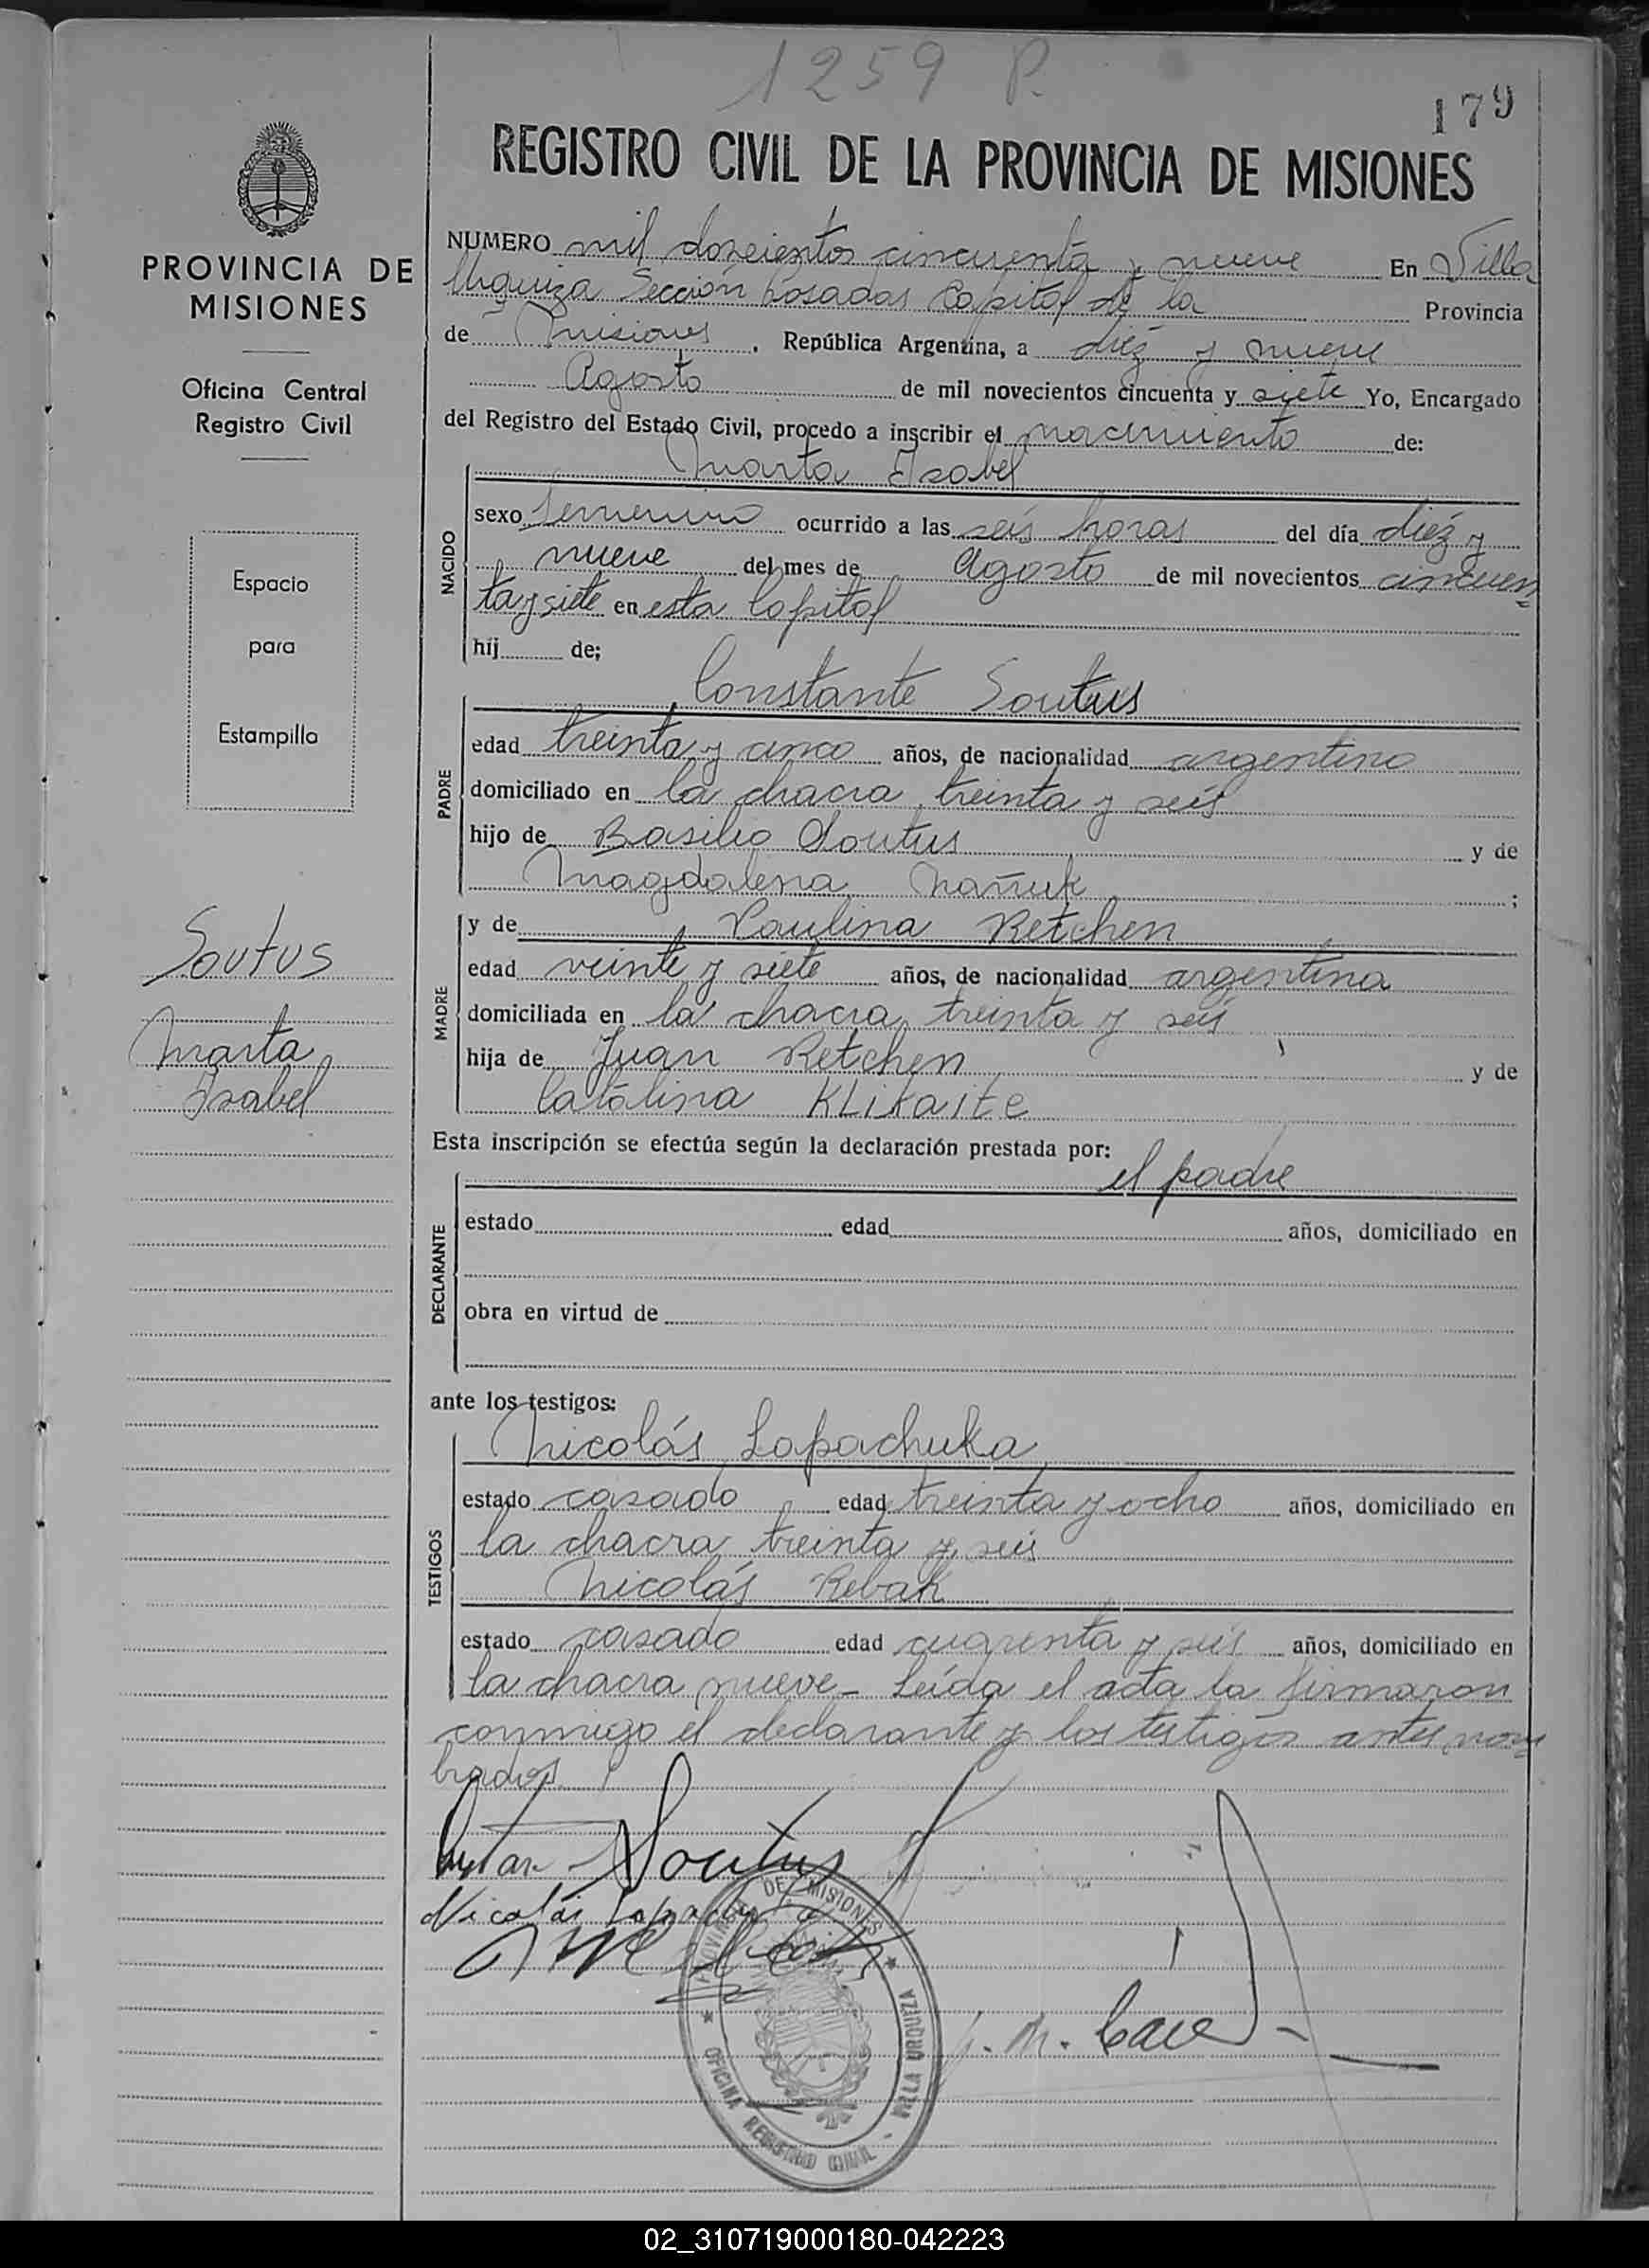 1259 P.
179
REGISTRO CIVIL DE LA PROVINCIA DE MISIONES
PROVINCIA DE
MISIONES
Oficina Central
Registro Civil
Espacio
para
Estampilla
Soutus
Marta
Isabel
NUMERO mil doscientos cincuenta y nueve En Villa
Urquiza Sección Posadas Capital de la Provincia
de Misiones, República Argentina, a diéz y nueve
Agosto de mil novecientos cincuenta y siete Yo, Encargado
del Registro del Estado Civil, procedo a inscribir el nacimiento de:
Marta Isabel
NACIDO
sexo femenino ocurrido a las seis horas del día diéz y
nueve del mes de Agosto de mil novecientos cincuen
ta y siete en esta Capital
hij de;
Constante Soutus
PADRE
edad treinta y cinco años, de nacionalidad argentino
domiciliado en la chacra treinta y seis
hijo de Basilio Soutus y de
Magdalena Mañuk ;
MADRE
y de Paulina Retchen
edad veinte y siete años, de nacionalidad argentina
domiciliada en la chacra treinta y seis
hija de Juan Retchen y de
Catalina Klikaite
Esta inscripción se efectúa según la declaración prestada por:
el padre
DECLARANTE
estado edad años, domiciliado en
obra en virtud de
ante los testigos:
Nicolás Lopachuka
TESTIGOS
estado casado edad treinta y ocho años, domiciliado en
la chacra treinta y seis
Nicolás Rebak
estado casado edad cuarenta y seis años, domiciliado en
la chacra nueve - Leída el acta la firmaron
conmigo el declarante y los testigos antes nom
brados
Soutus
Nicolás
PROVINCIA DE MISIONES
OFICINA REGISTRO CIVIL - VILLA URQUIZA
02_310719000180-042223